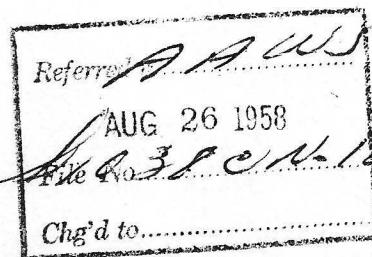 Referred AAWS
AUG 26 1958
File No.
Chg'd to